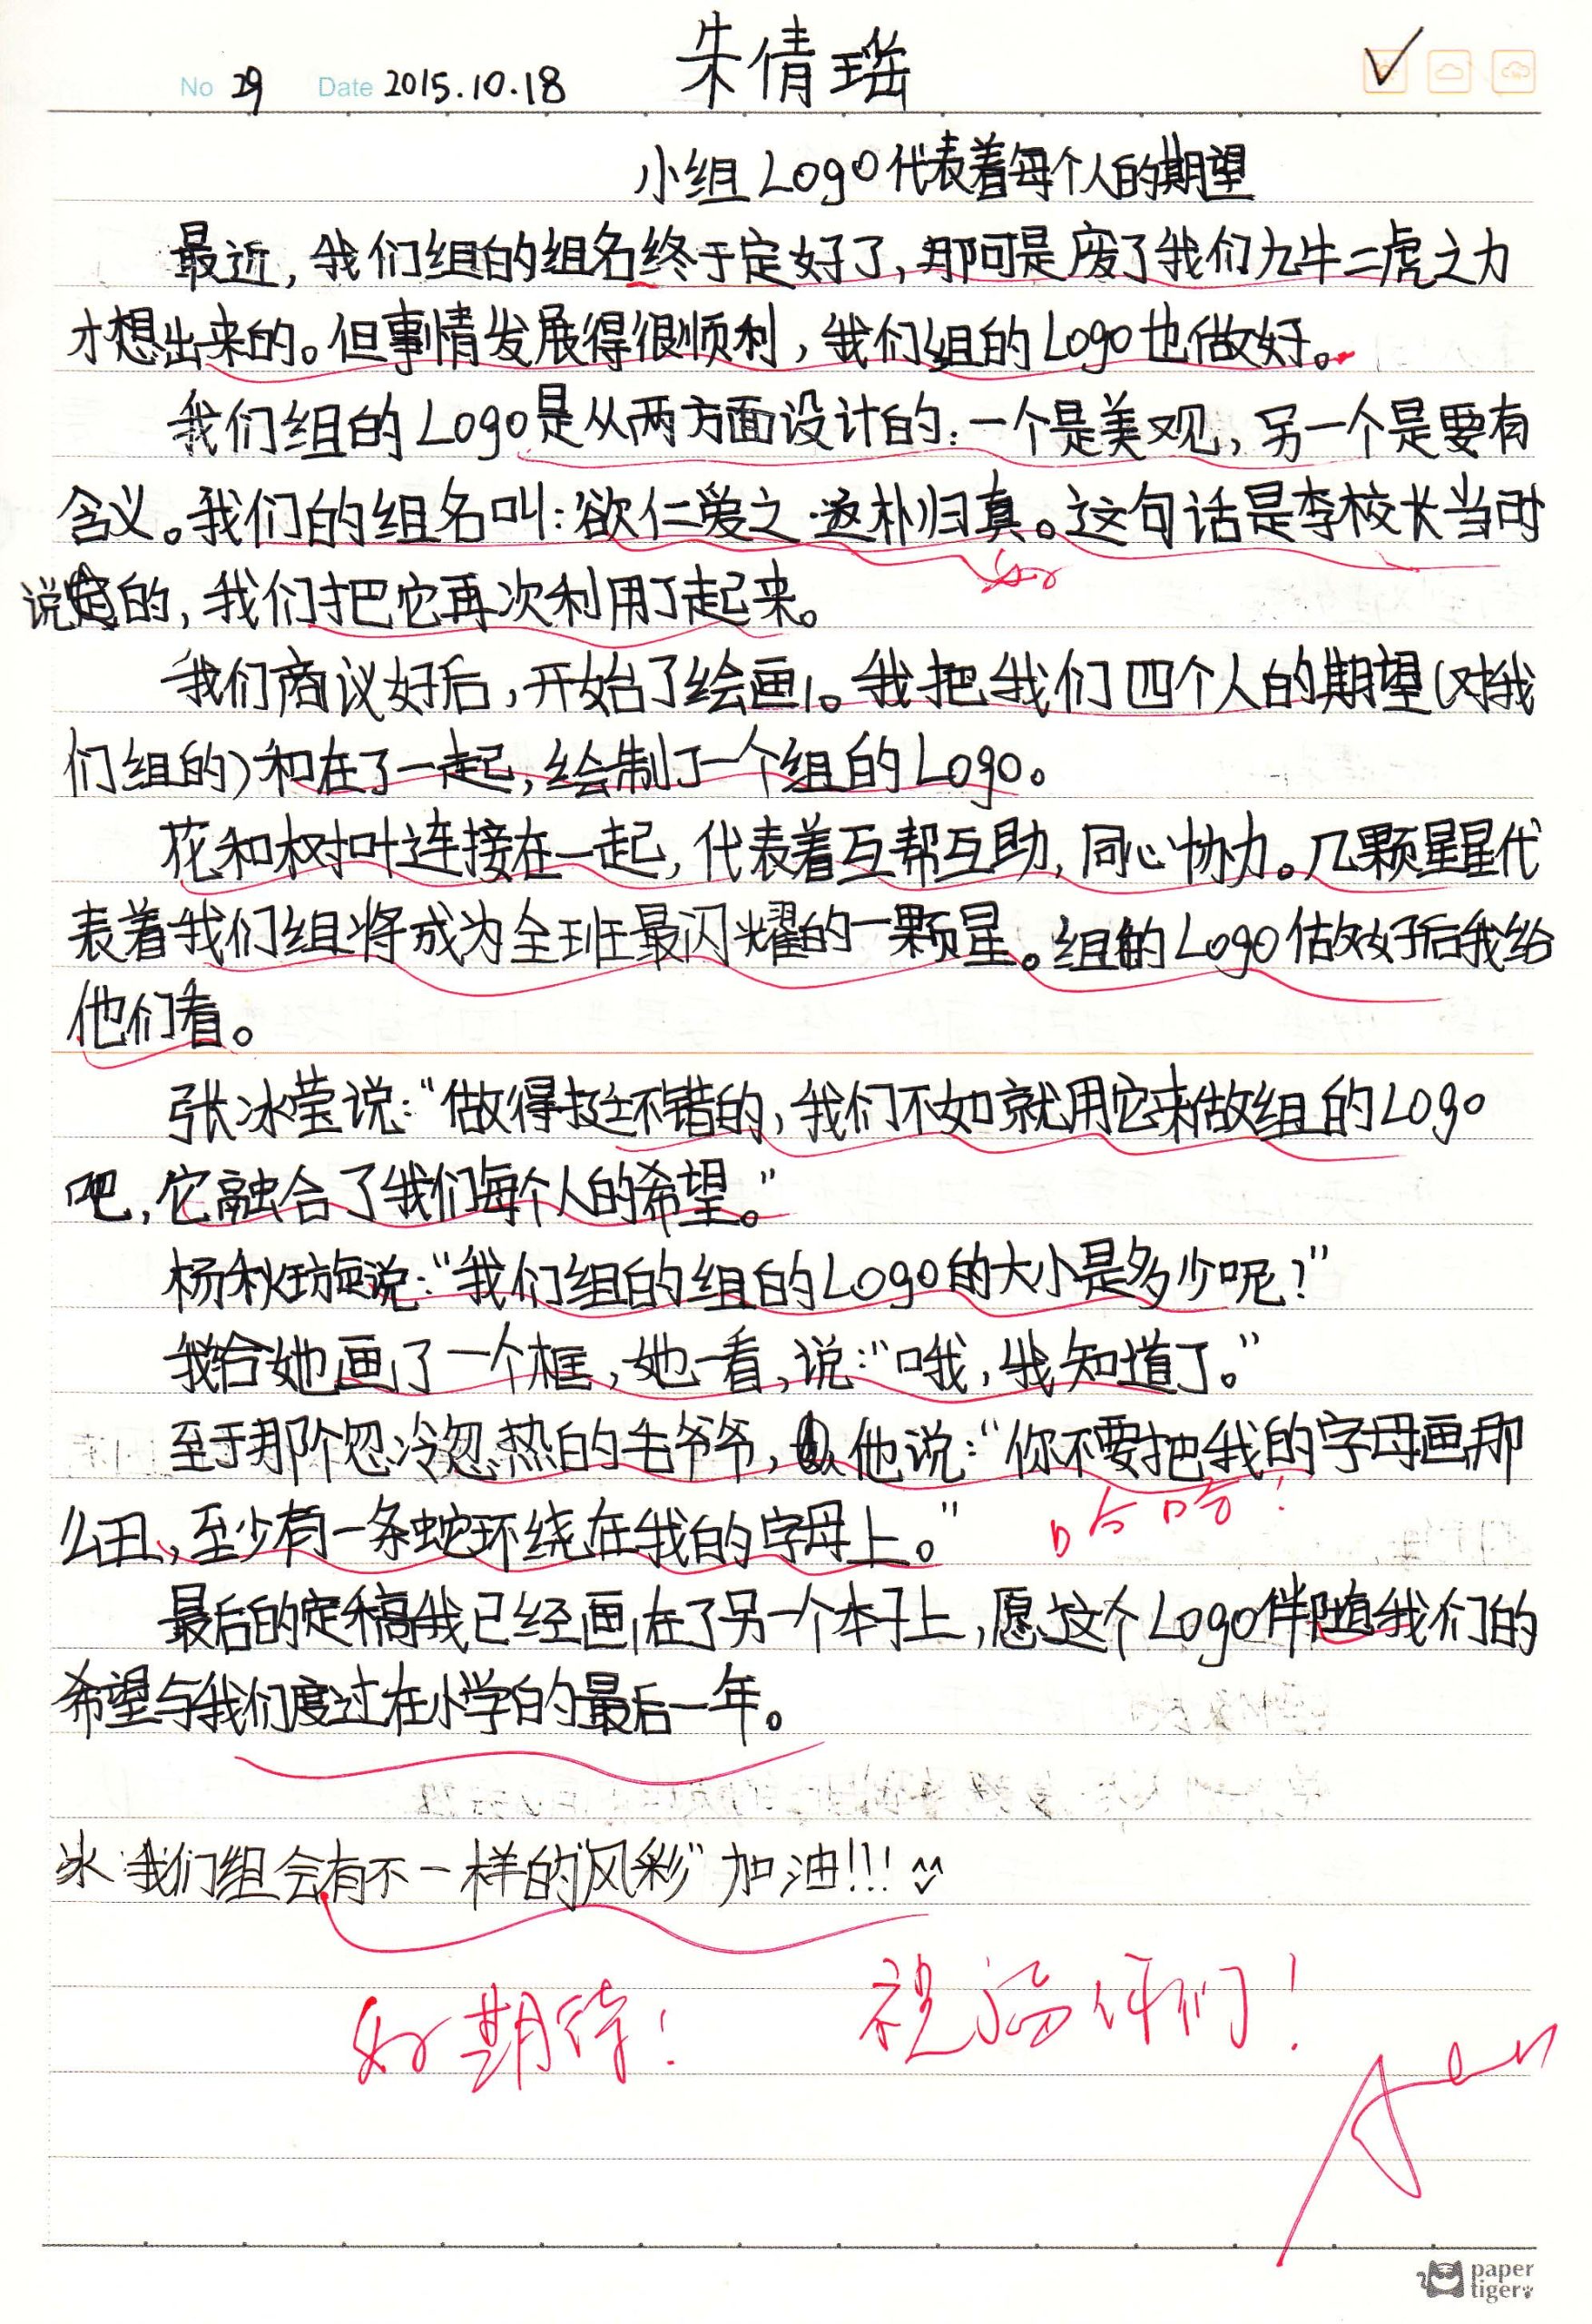 朱倩瑶
No 29 Date 2015.10.18
小组Logo代表着每个人的期望
最近,我们组的组名终于定好了,那可是废了我们九牛二虎之力
才想出来的。但事情发展得很顺利,我们组的Logo也做好。
我们组的Logo是从两方面设计的:一个是美观,另一个是要有
含义。我们的组名叫:欲仁爱之·返朴归真。这句话是李校长当时
好
说的,我们把它再次利用了起来。
我们商议好后,开始了绘画。我把我们四个人的期望(对我
们组的)和在了一起,绘制了一个组的Logo。
花和树叶连接在一起,代表着互帮互助,同心协力。几颗星星代
表着我们组将成为全班最闪耀的一颗星。组的Logo做好后我给
他们看。
张冰莹说:“做得挺不错的,我们不如就用它来做组的Logo
吧,它融合了我们每个人的希望。”
杨秋璇说:“我们组的组的Logo的大小是多少呢?”
我给她画了一个框,她一看,说:“哦,我知道了。”
至于那个忽冷忽热的毛爷爷,他说:“你不要把我的字母画那
哈哈!
么丑,至少有一条蛇环绕在我的字母上。”
最后的定稿我已经画在了另一个本子上,愿这个Logo伴随我们的
希望与我们度过在小学的最后一年。
米:我们组会有不一样的“风彩”加油!!! ^^
好期待! 祝福你们!
paper
tiger